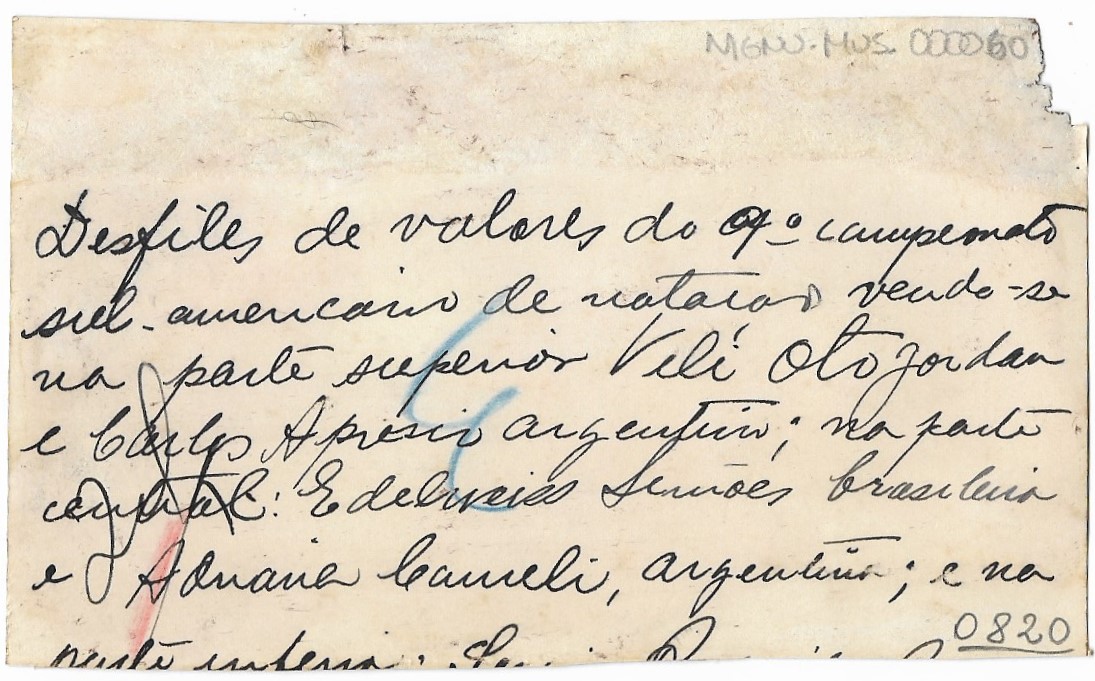 MGNV-MUS. 000060
Desfiles de valores do 9º campeonato
sul-americano de natacao vendo-se
na parte superior Veli Oto Jordan
e Carlos Apresio argentino; na parte
central: Edelweiss Simões brasileira
e Adriana Cameli, argentina; e na
0820
parte inferior: